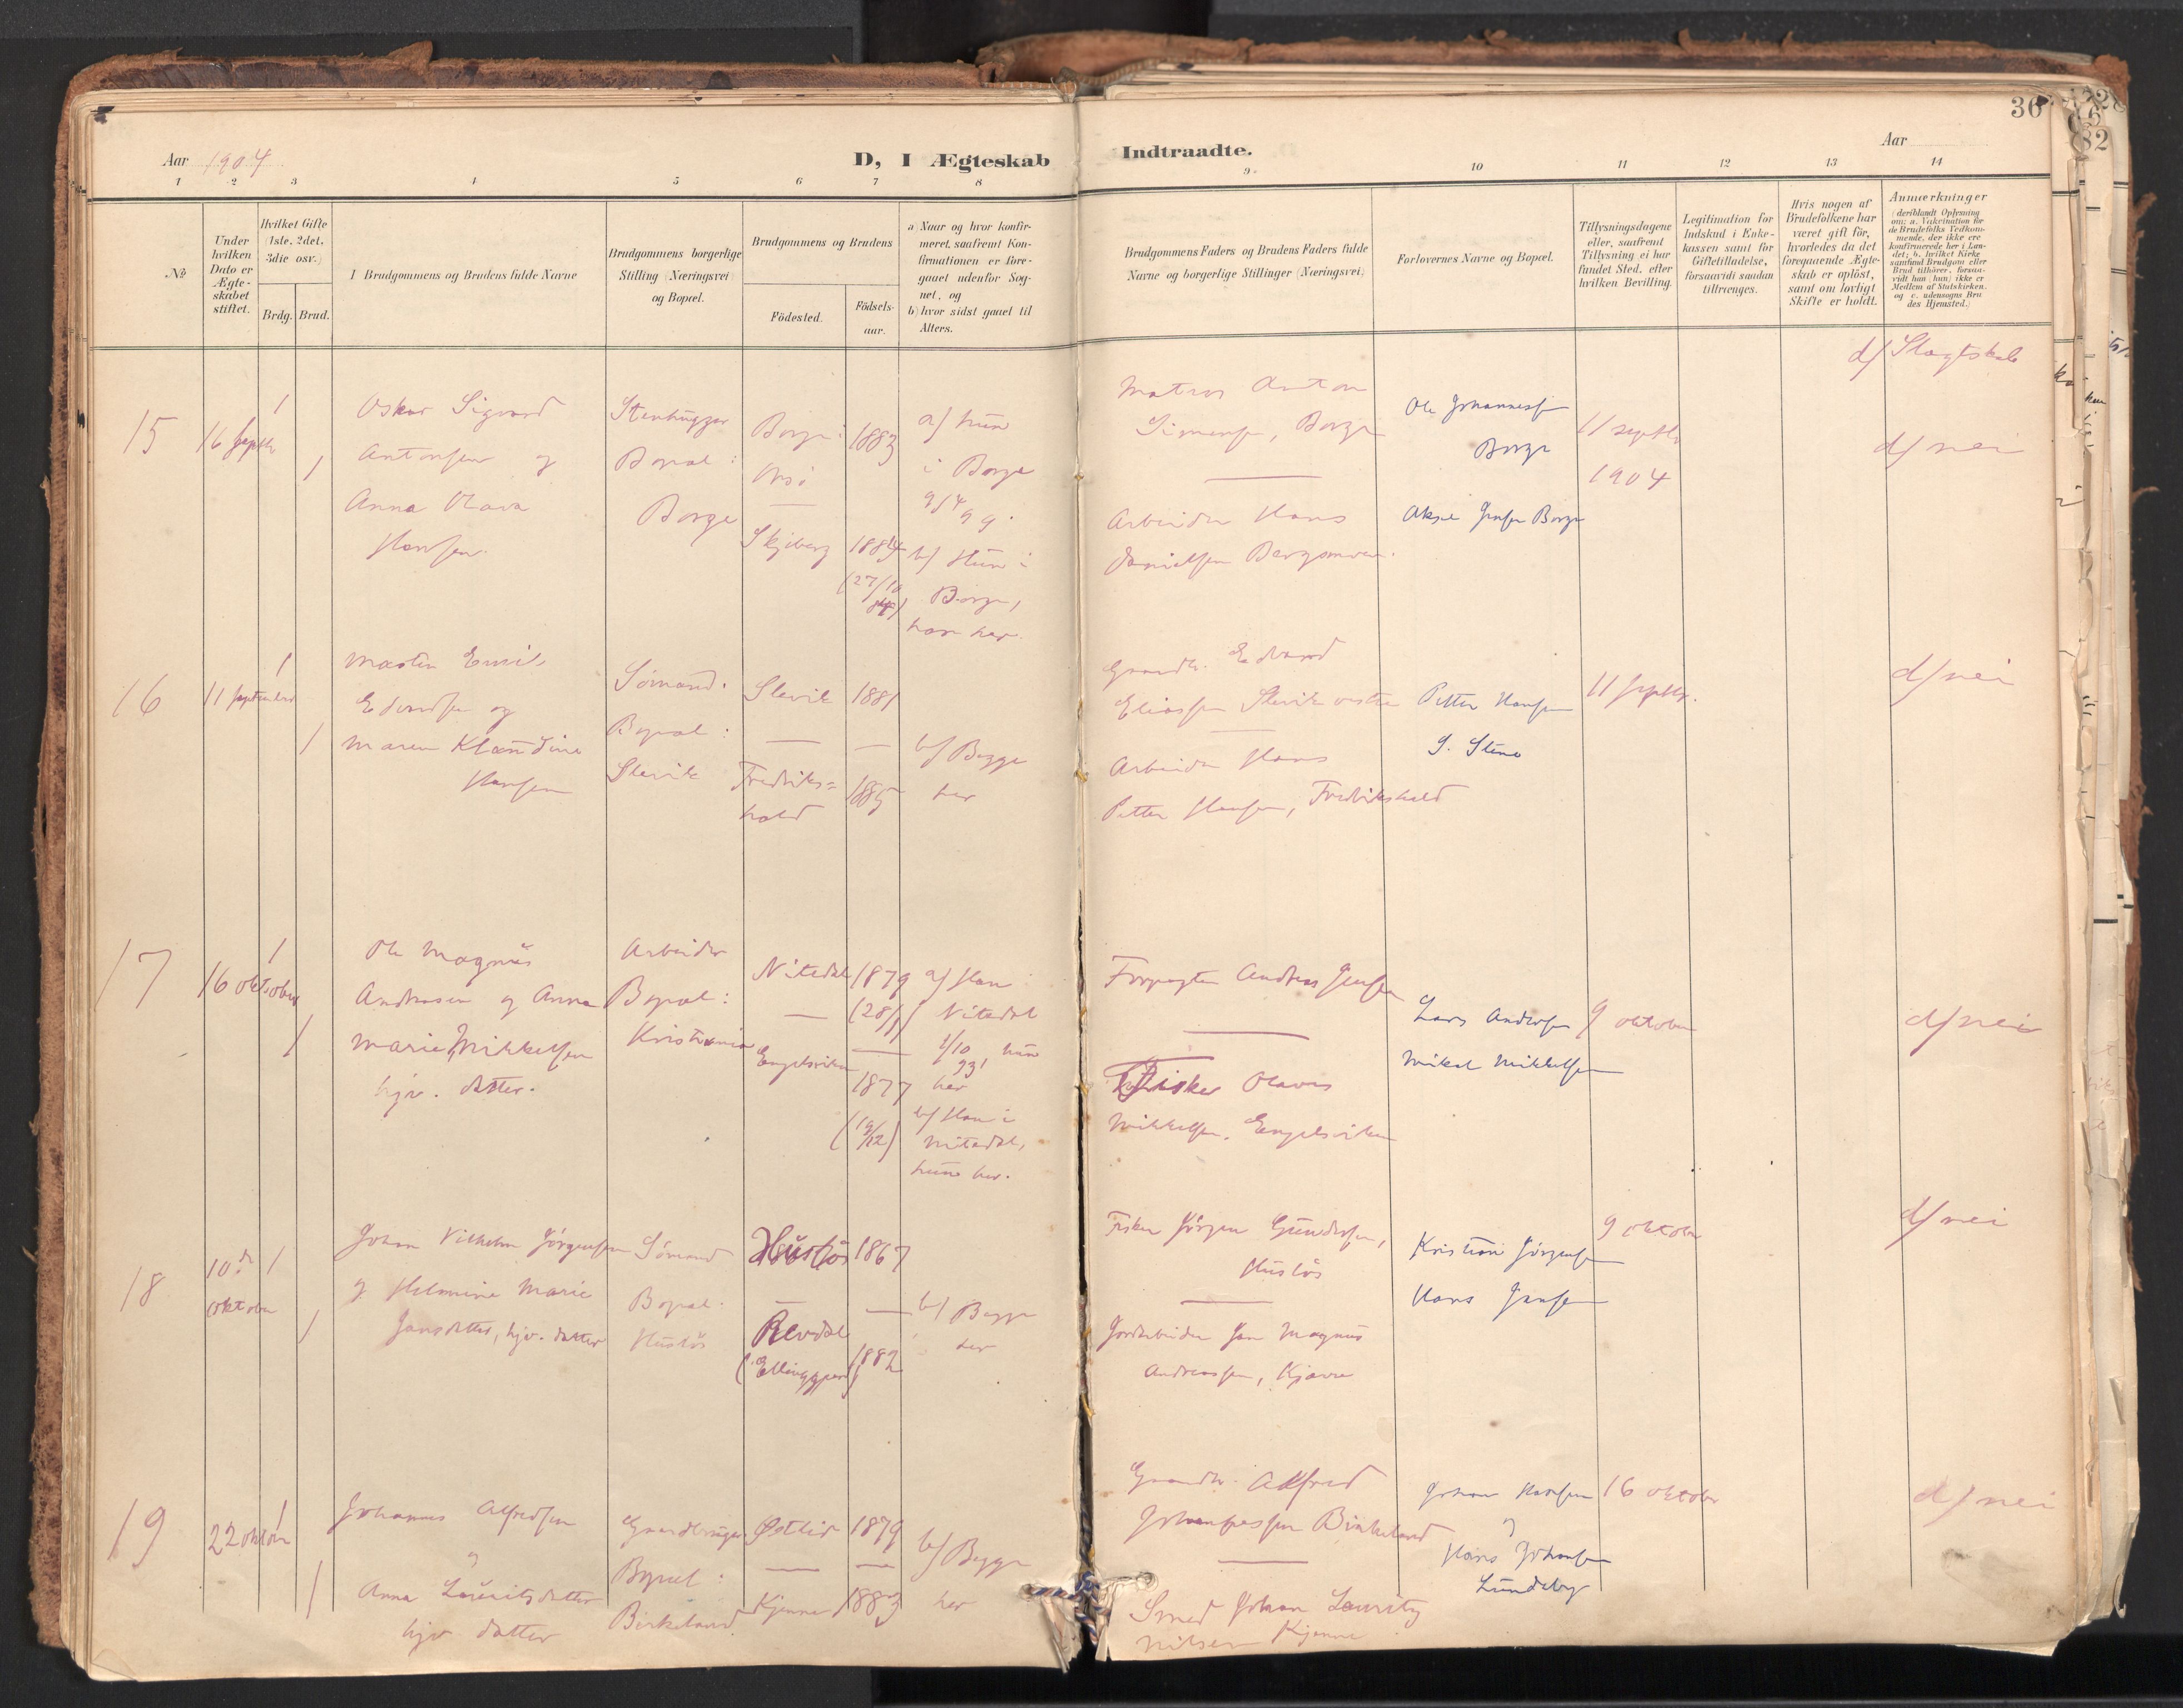 Aar 1904
D, I Ægteskab
Indtraadte.
Aar
36
1 2 3 4 5 6 7 8 9 10 11 12 13 14
No
Under hvilken Dato er Ægte-skabet stiftet.
Hvilket Gifte (1ste, 2det, 3die osv.)
Brdg. Brud.
I Brudgommens og Brudens fulde Navne
Brudgommens borgerlige Stilling (Næringsvei) og Bopæl.
Brudgommens og Brudens
Födested.
Födsels-aar.
a) Naar og hvor konfir-meret, saafremt Kon-firmationen er fore-gaaet udenfor Sog-net, og
b) hvor sidst gaaet til Alters.
Brudgommens Faders og Brudens Faders fulde Navne og borgerlige Stillinger (Næringsvei)
Forlovernes Navne og Bopæl.
Tillysningsdagene eller, saafremt Tillysning ei har fundet Sted, efter hvilken Bevilling.
Legitimation for Indskud i Enke-kassen samt for Giftetilladelse, forsaavidt saadan tiltrænges.
Hvis nogen af Brudefolkene har været gift för, hvorledes da det foregaaende Ægte-skab er oplöst, samt om lovligt Skifte er holdt.
Anmærkninger
(deriblandt Oplysning om: a. Vakcination for de Brudefolks Vedkom-mende, der ikke ere konfirmerede her i Lan-det; b. hvilket Kirke samfund Brudgom eller Brud tilhörer, forsaa-vidt han (hun) ikke er Medlem af Statskirken. og c. udensogns Bru des Hjemsted.)
d/ Slagtskab
15
16 septbr
1
1
Oskar Sigvard
Antonsen og
Anna Olava
Hansen.
Stenhugger
Bopæl:
Borge
Borge:
—
Skjeberg
1883
1884
(27/10
a/ hun
i Borge
9/4 99.
b/ Hun i
Borge,
han her.
Matros Anton
Simensen, Borge
—
Arbeider Hans
Danielsen
Ole Johannessen
Borge
Aksel Jensen Borge
11 septbr
1904
d/ nei
16
11 september
1
1
Martin Emil
Edvardsen og
Maren Klaudine
Hansen
Sömand.
Bopæl:
Slevik
Slevik
—
Fredriks=
hald
1881
—
1885
b/ Begge
her
Gaardbr. Edvard
Eliassen Slevik vestre
—
Arbeider Hans
Petter Hansen, Fredrikshald
Petter Hansen
S. Stene
11 septbr.
d/ nei
17
16 oktober
1
1
Ole Magnus
Andreasen og Anna
Marie Mikkelsen
hjv. datter.
Arbeider
Bopæl:
Kristiania
Nitedal
—
Engelsviken
1879
(28/1)
—
1877
(19/12)
a/ Han
Nitedal
1/10 93, hun
her
b/ Han i
Nitedal,
hun her.
Forpagter Andreas Jensen
—
Fisker Olaves
Mikkelsen, Engelsviken
Lars Andersen
Mikal Mikkelsen
9 oktober
d/ nei
18
10de
oktober
1
1
Johan Vilhelm Jörgensen
og Helmine Marie
Jansdatter, hjv. datter
Sömand
Bopæl.
Huslös
Huslös
—
Revdal
1867
—
1882
b/ Begge
her
Fisker Jörgen Gundersen,
Huslös
—
Jordarbeider Jan Magnus
Andreassen, Kjære
Kristian Jörgensen
Hans Jensen
9 oktober
d/ nei
19
22 oktbr
1
1
Johannes Alfredsen
og
Anna Lauritsdatter
hjv. datter
Gaardbruger
Bopæl:
Birkeland
Østlid
—
Kjenne
1879
—
1883
b/ Begge
her
Gaardbr. Alfred
Johannessen Birkeland
—
Smed Johan Lauritz
Nilsen Kjenne
Johan Hansen
og
Hans Johansen
Lundeby
16 oktober
d/ nei